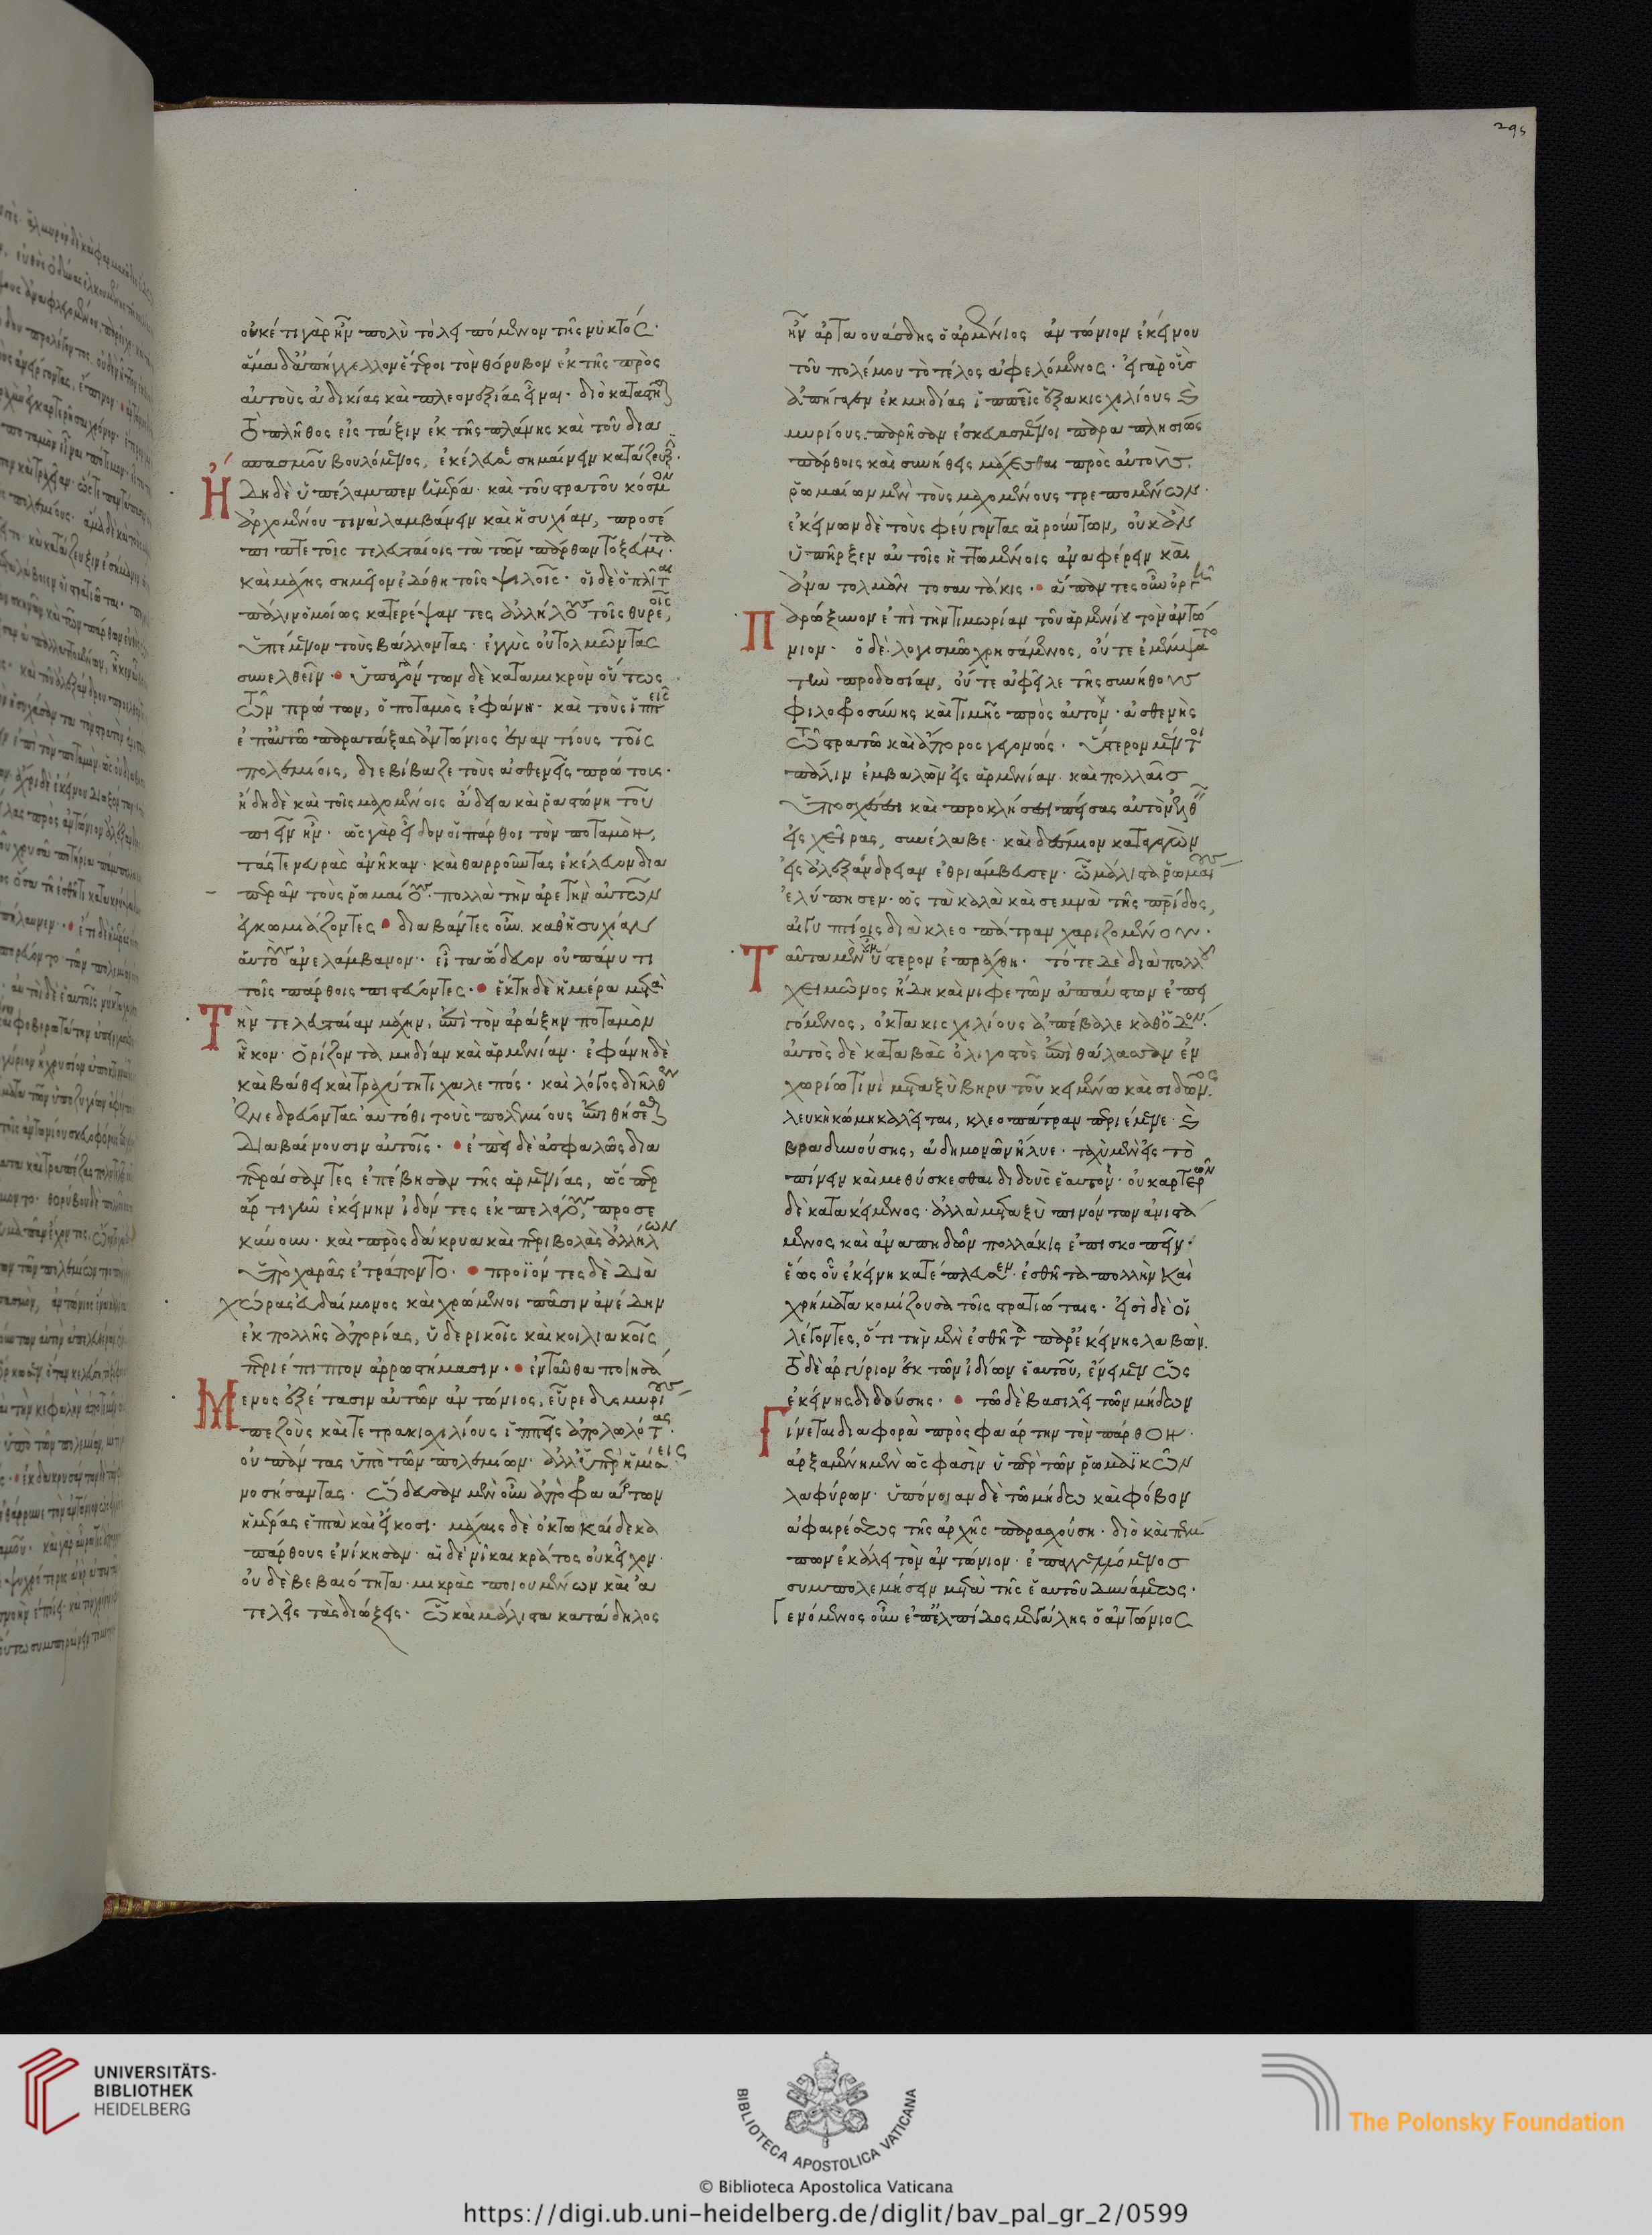 οὐκέτι γὰρ ἦν πολὺ τὸ λειπόμενον τῆς νυκτός·
ἅμα δ' ἀπήγγελλον ἕτεροι τὸν θόρυβον ἐκ τῆς πρὸς
αὑτοὺς ἀδικίας καὶ πλεονεξίας εἶναι· διὸ καταστῆσαι
τὸ πλῆθος εἰς τάξιν ἐκ τῆς πλάνης καὶ τοῦ δια
σπασμοῦ βουλόμενος, ἐκέλευσε σημαίνειν κατάζευξιν·
Ἤδη δὲ ὑπέλαμπεν ἡμέρα· καὶ τοῦ στρατοῦ κόσμον
ἀρχομένου τινὰ λαμβάνειν καὶ ἡσυχίαν, προσέ
πιπτε τοῖς τελευταίοις τὰ τῶν πάρθων τοξεύματα·
καὶ μάχης σημεῖον ἐδόθη τοῖς ψιλοῖς· οἱ δὲ ὁπλῖται
πάλιν ὁμοίως κατερέψαντες ἀλλήλους τοῖς θυρεοῖς,
ὑπέμενον τοὺς βάλλοντας· ἐγγὺς οὐ τολμῶντας
συνελθεῖν· ὑπαγόντων δὲ κατὰ μικρὸν οὕτως
τῶν πρώτων, ὁ ποταμὸς ἐφάνη· καὶ τοὺς ἱππεῖς
ἐπ' αὐτῷ παρατάξας ἀντώνιος ἐναντίους τοῖς
πολεμίοις, διεβίβαζε τοὺς ἀσθενεῖς πρώτους·
ἤδη δὲ καὶ τοῖς μαχομένοις ἄδεια καὶ ῥαστώνη τοῦ
πιεῖν ἦν· ὡς γὰρ εἶδον οἱ πάρθοι τὸν ποταμὸν,
τάς τε νευρὰς ἀνῆκαν· καὶ θαρροῦντας ἐκέλευον δια
περᾶν τοὺς ῥωμαίους· πολλὰ τὴν ἀρετὴν αὐτῶν
ἐγκωμιάζοντες· διαβάντες οὖν καθ' ἡσυχίαν
αὑτοὺς ἀνελάμβανον· εἶτα ὥδευον οὐ πάνυ τι
τοῖς πάρθοις πιστεύοντες· ἕκτη δὲ ἡμέρα μετὰ
Τὴν τελευταίαν μάχην, ἐπὶ τὸν ἀράξην ποταμὸν
ἧκον· ὁρίζοντα μηδίαν καὶ ἀρμενίαν· ἐφάνη δὲ
καὶ βάθει καὶ τραχύτητι χαλεπός· καὶ λόγος διῆλθεν
ἐνεδρεύοντας αὐτόθι τοὺς πολεμίους ἐπιθήσεσθαι
διαβαίνουσιν αὐτοῖς· ἐπεὶ δὲ ἀσφαλῶς δια
περάσαντες ἐπέβησαν τῆς ἀρμενίας, ὥσπερ
ἄρτι γῆν ἐκείνην ἰδόντες ἐκ πελάγους, προσε
κύνουν· καὶ πρὸς δάκρυα καὶ περιβολὰς ἀλλήλων
ὑπὸ χαρᾶς ἐτράποντο· προϊόντες δὲ διὰ
χώρας εὐδαίμονος καὶ χρώμενοι πᾶσιν ἀνέδην
ἐκ πολλῆς ἀπορίας, ὑδερικοῖς καὶ κοιλιακοῖς
περιέπιπτον ἀρρωστήμασιν· ἐνταῦθα ποιησά
Μενος ἐξέτασιν αὐτῶν ἀντώνιος, εὗρε δισμυρίους
πεζοὺς καὶ τετρακισχιλίους ἱππεῖς ἀπολωλότας·
οὐ πάντας ὑπὸ τῶν πολεμίων· ἀλλ' ὑπὲρ ἡμίσεις
νοσήσαντας· ὥδευσαν μὲν οὖν ἀπὸ φραάρτων
ἡμέρας ἑπτὰ καὶ εἴκοσι· μάχαις δὲ ὀκτωκαίδεκα
πάρθους ἐνίκησαν· αἱ δὲ νῖκαι κράτος οὐκ εἶχον·
οὐδὲ βεβαιότητα· μικρὰς ποιουμένων καὶ ἀ
τελεῖς τὰς διώξεις· ᾧ καὶ μάλιστα κατάδηλος
ἦν ἀρταουάσδης ὁ ἀρμένιος ἀντώνιον ἐκείνου
τοῦ πολέμου τὸ τέλος ἀφελόμενος· εἰ γὰρ οὓς
ἀπήγαγεν ἐκ μηδίας ἱππεῖς ἑξακισχιλίους καὶ
μυρίους παρῆσαν ἐσκευασμένοι παραπλησίως
πάρθοις καὶ συνήθεις μάχεσθαι πρὸς αὐτοὺς,
ῥωμαίων μὲν τοὺς μαχομένους τρεπομένων·
ἐκείνων δὲ τοὺς φεύγοντας αἱρούντων, οὐκ ἂν
ὑπῆρξεν αὐτοῖς ἡττωμένοις ἀναφέρειν καὶ
ἀνατολμᾶν τοσαυτάκις· ἅπαντες οὖν ὀργῇ
Παρώξυνον ἐπὶ τὴν τιμωρίαν τοῦ ἀρμενίου τὸν ἀντώ
νιον· ὁ δὲ λογισμῷ χρησάμενος, οὔτε ἐμέμψατο
τὴν προδοσίαν, οὔτε ἀφεῖλε τῆς συνήθους
φιλοφροσύνης καὶ τιμῆς πρὸς αὐτὸν· ἀσθενὴς
τῷ στρατῷ καὶ ἄπορος γεγονώς· ὕστερον μέντοι
πάλιν ἐμβαλὼν εἰς ἀρμενίαν· καὶ πολλαῖς
ὑποσχέσεσι καὶ προκλήσεσι πείσας αὐτὸν ἐλθεῖν
εἰς χεῖρας, συνέλαβε· καὶ δέσμιον καταγαγὼν
εἰς ἀλεξάνδρειαν ἐθριάμβευσεν· ᾧ μάλιστα ῥωμαίους
ἐλύπησεν· ὡς τὰ καλὰ καὶ σεμνὰ τῆς πατρίδος,
αἰγυπτίοις διὰ κλεοπάτραν χαριζόμενος·
Ταῦτα μὲν οὖν ὕστερον ἐπράχθη· τότε δὲ διὰ πολλοῦ
χειμῶνος ἤδη καὶ νιφετῶν ἀπαύστων ἐπει
γόμενος, ὀκτακισχιλίους ἀπέβαλε καθ' ὁδόν·
αὐτὸς δὲ καταβὰς ὀλιγοστὸς ἐπὶ θάλασσαν ἐν
χωρίῳ τινὶ μεταξὺ βηρυτοῦ κειμένῳ καὶ σιδῶνος·
λευκὴ κώμη καλεῖται, κλεοπάτραν περιέμενε· καὶ
βραδυνούσης, ἀδημονῶν ἤλυε· ταχὺ μὲν εἰς τὸ
πίνειν καὶ μεθύσκεσθαι διδοὺς ἑαυτόν· οὐ καρτερῶν
δὲ κατακείμενος· ἀλλὰ μεταξὺ πινόντων ἀνιστά
μενος καὶ ἀναπηδῶν πολλάκις ἐπισκοπεῖν·
ἕως οὗ ἐκείνη κατέπλευσεν· ἐσθῆτα πολλὴν καὶ
χρήματα κομίζουσα τοῖς στρατιώταις· εἰσὶ δὲ οἱ
λέγοντες, ὅτι τὴν μὲν ἐσθῆτα παρ' ἐκείνης λαβὼν·
τὸ δὲ ἀργύριον ἐκ τῶν ἰδίων ἑαυτοῦ, ἔνειμεν ὡς
ἐκείνης διδούσης· τῷ δὲ βασιλεῖ τῶν μήδων
Γίνεται διαφορὰ πρὸς φραάρτην τὸν πάρθον·
ἀρξαμένη μὲν ὥς φασιν ὑπὲρ τῶν ῥωμαϊκῶν
λαφύρων· ὑπόνοιαν δὲ τῷ μήδῳ καὶ φόβον
ἀφαιρέσεως τῆς ἀρχῆς παρασχοῦσα· διὸ καὶ πέμ
πων ἐκάλει τὸν ἀντώνιον· ἐπαγγελλόμενος
συμπολεμήσειν μετὰ τῆς ἑαυτοῦ δυνάμεως·
Γενόμενος οὖν ἐπ' ἐλπίδος μεγάλης ὁ ἀντώνιος
295
UNIVERSITÄTS-
BIBLIOTHEK
HEIDELBERG
BIBLIOTECA APOSTOLICA VATICANA
The Polonsky Foundation
© Biblioteca Apostolica Vaticana
https://digi.ub.uni-heidelberg.de/diglit/bav_pal_gr_2/0599